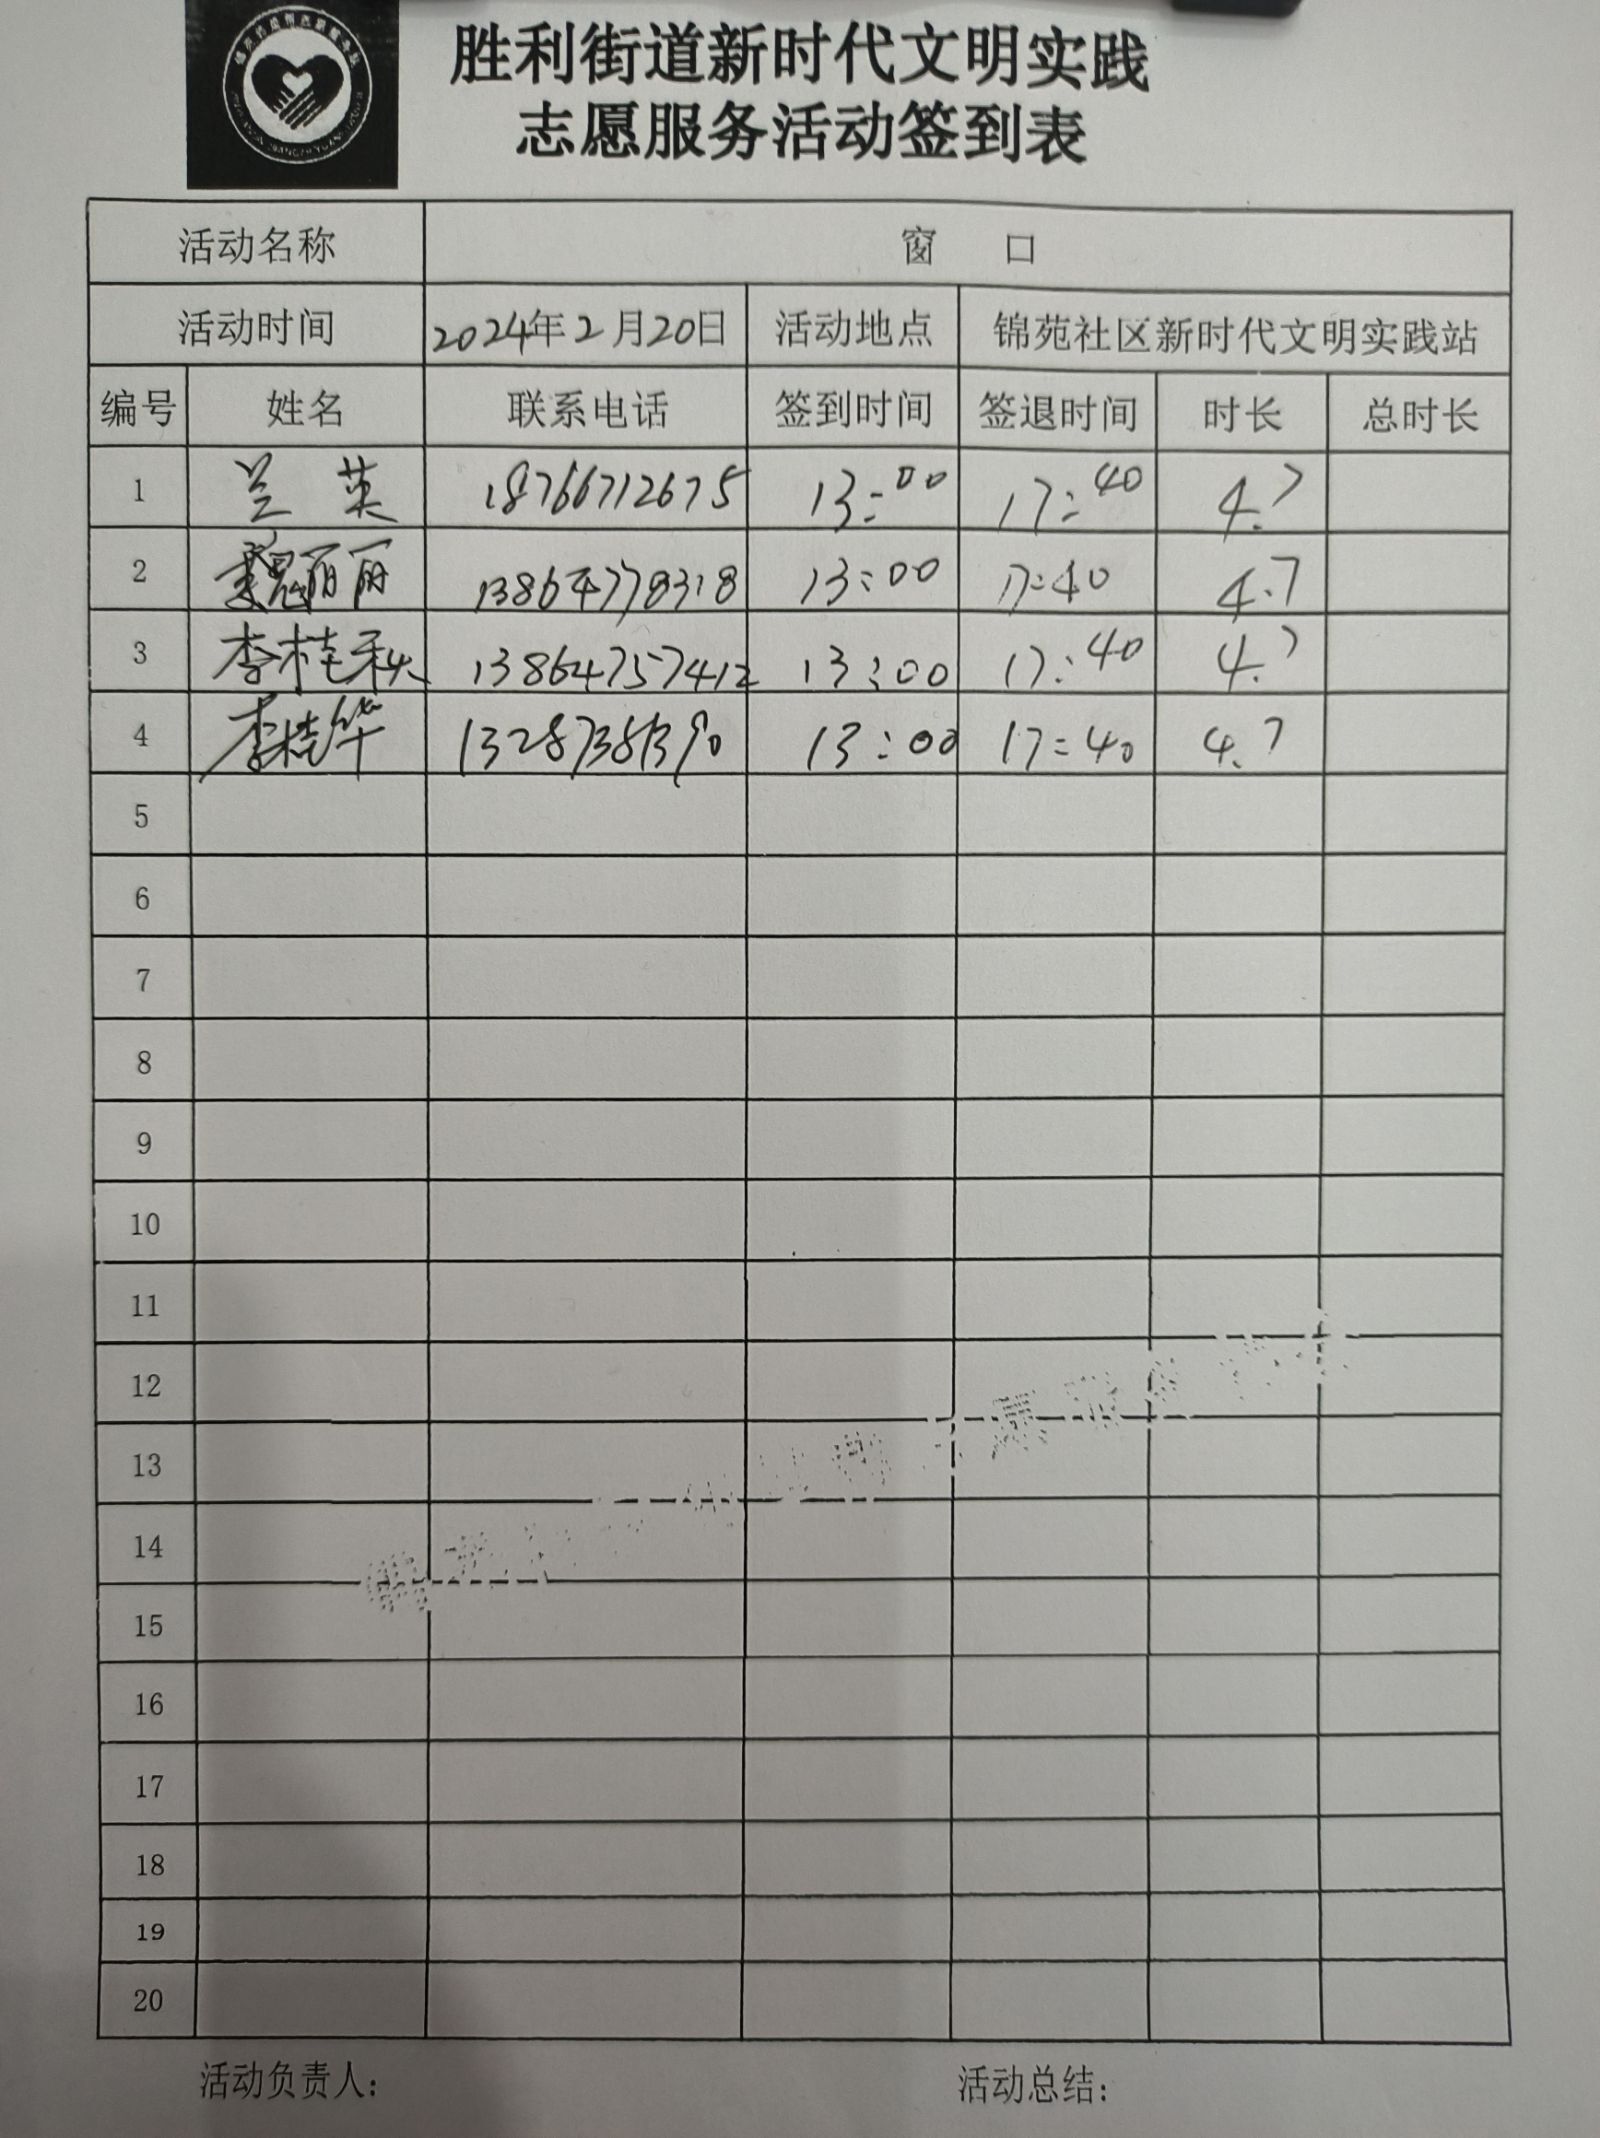 胜利街道新时代文明实践
志愿服务活动签到表
活动名称 窗 口
活动时间 2024年2月20日 活动地点 锦苑社区新时代文明实践站
编号 姓名 联系电话 签到时间 签退时间 时长 总时长
1 兰英 18766712675 13:00 17:40 4.7
2 魏丽丽 13864778318 13:00 17:40 4.7
3 李桂秋 13864757412 13:00 17:40 4.7
4 李桂华 13:00 17:40 4.7
5
6
7
8
9
10
11
12
13
14
15
16
17
18
19
20
活动负责人: 活动总结: